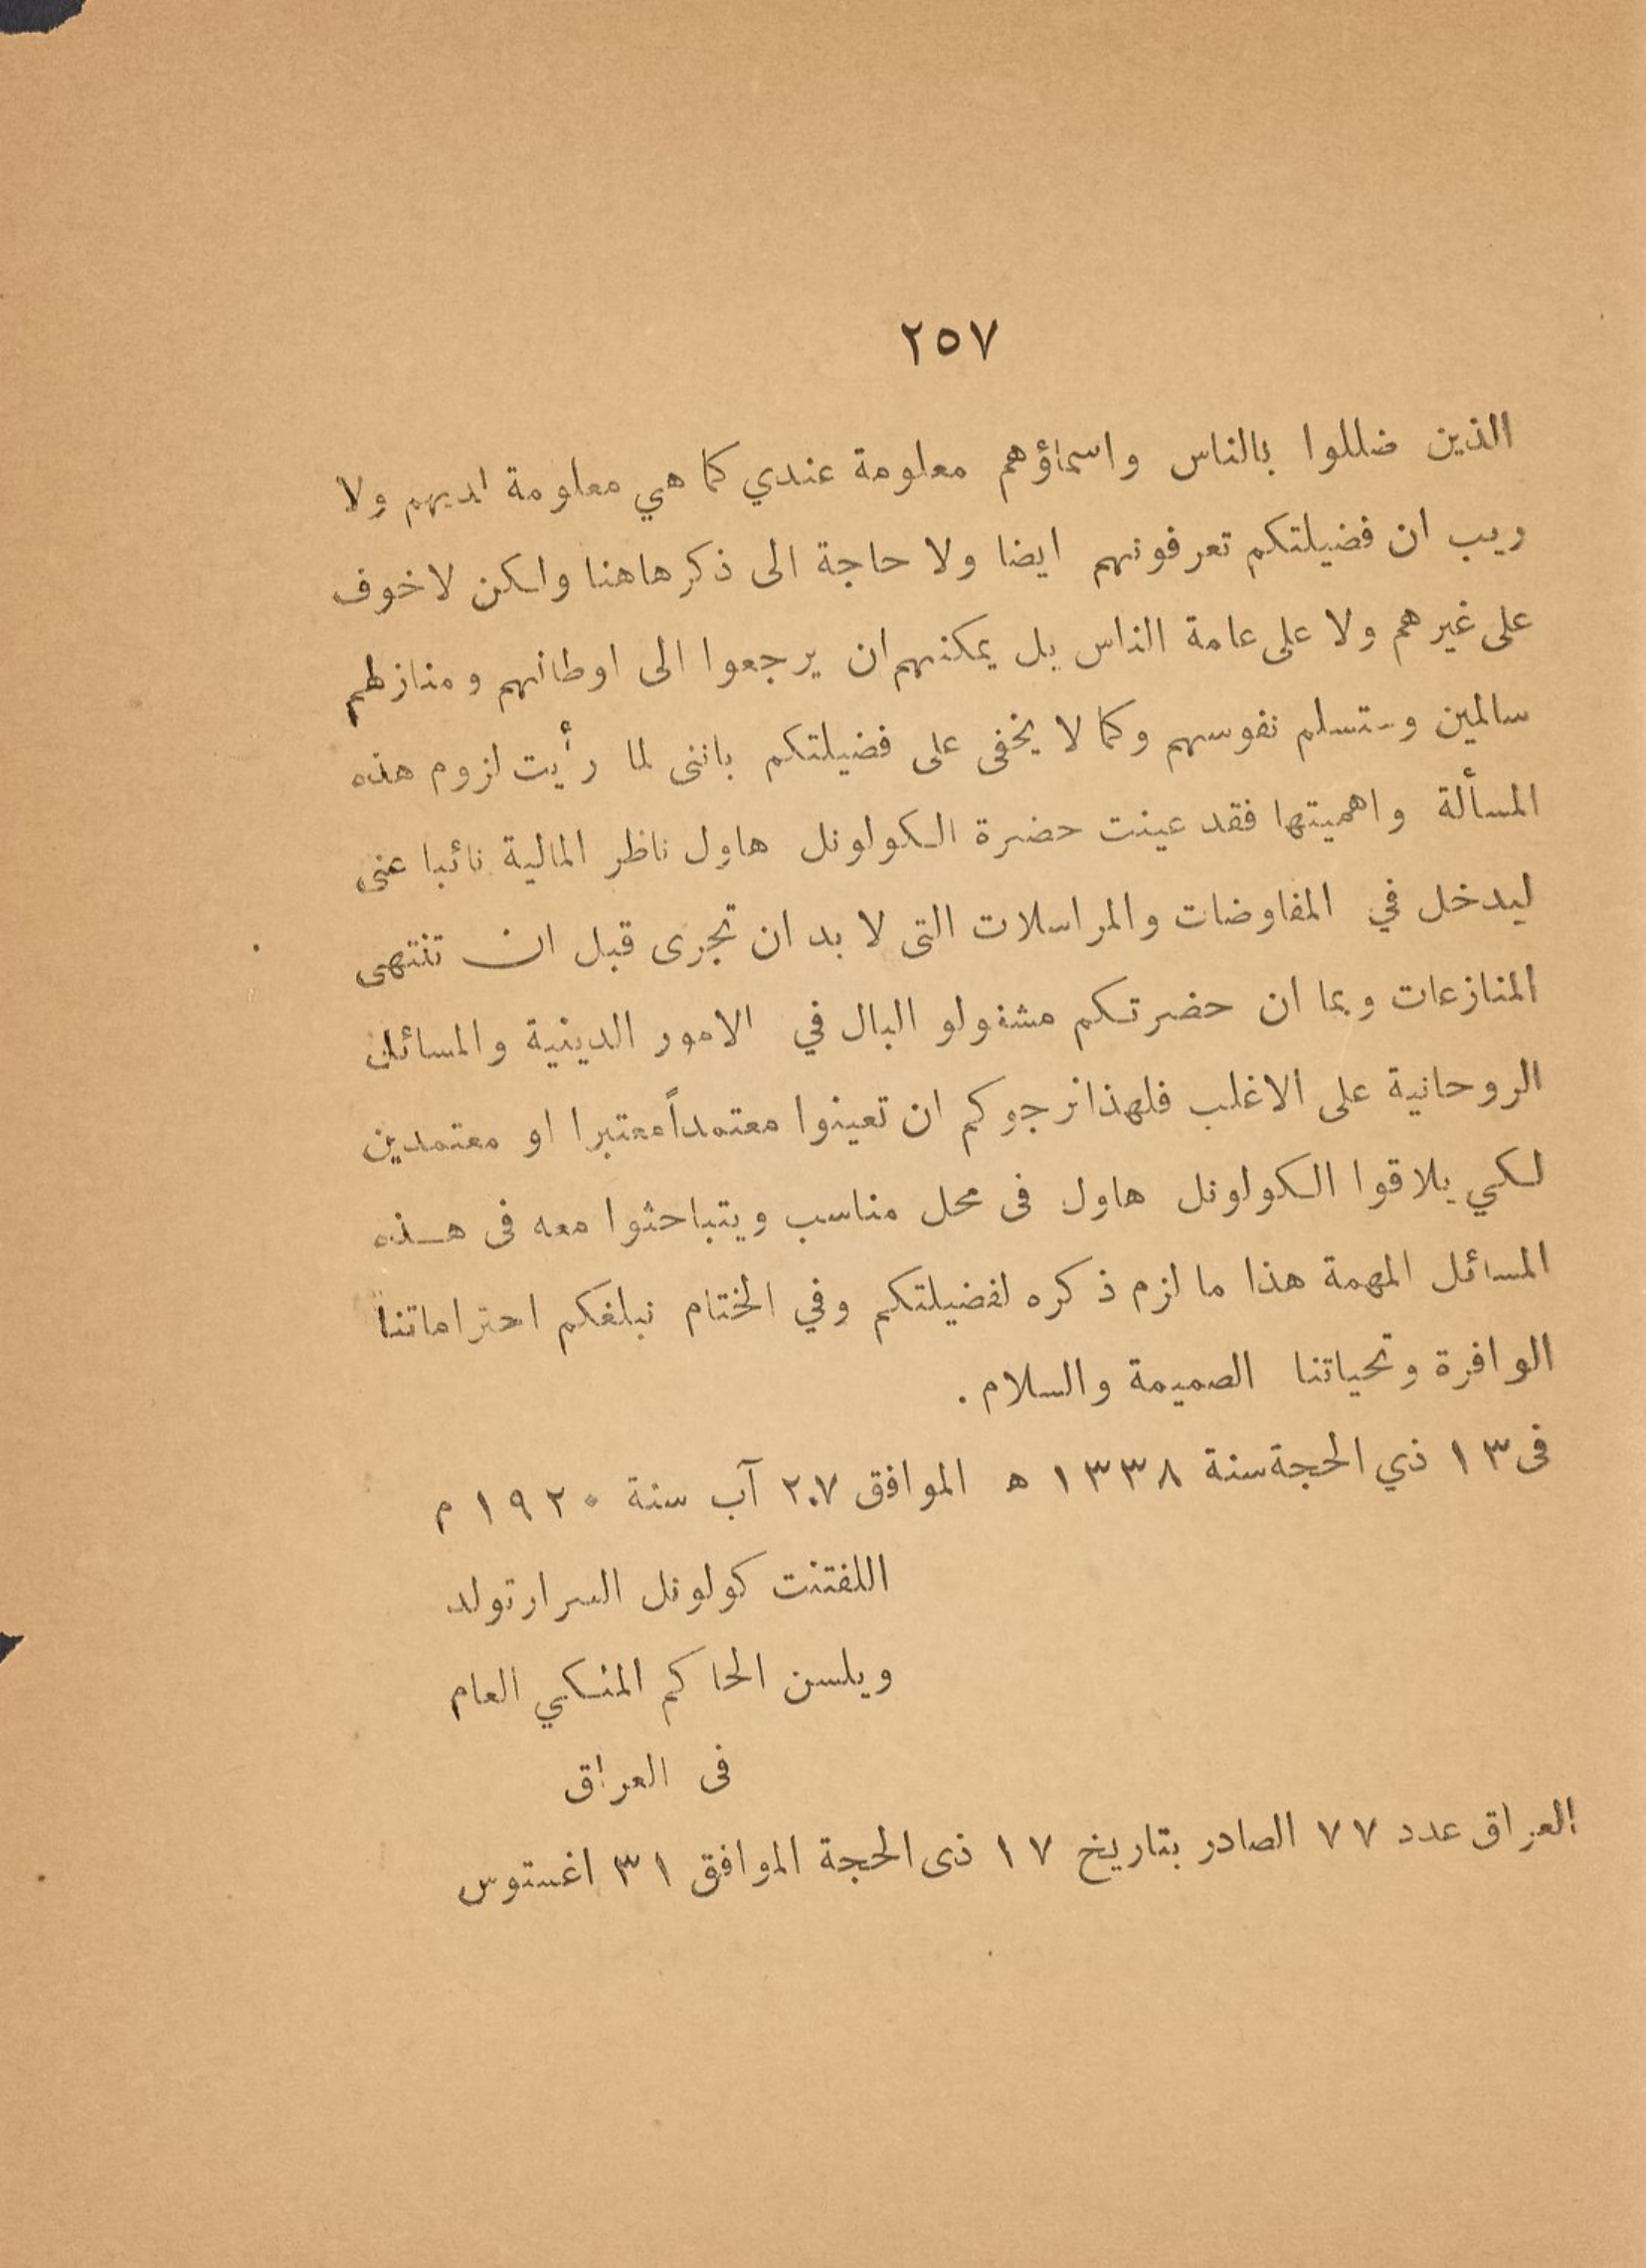 ٢٥٧
الذين ضللوا بالناس واسماؤهم معلومة عندي كما هي معلومة لديهم ولا
ريب ان فضيلتكم تعرفونهم ايضا ولا حاجة الى ذكرها هنا ولكن لا خوف
على غيرهم ولا على عامة الناس بل يمكنهم ان يرجعوا الى اوطانهم ومنازلهم
سالمين وستسلم نفوسهم وكما لا يخفى على فضيلتكم باننى لما رأيت لزوم هذه
المسألة واهميتها فقد عينت حضرة الكولونل هاول ناظر المالية نائبا عنى
ليدخل في المفاوضات والمراسلات التى لا بد ان تجرى قبل ان تنتهى
المنازعات وبما ان حضرتكم مشغولو البال في الامور الدينية والمسائل
الروحانية على الاغلب فلهذا نرجوكم ان تعينوا معتمداً معتبرا او معتمدين
لكي يلاقوا الكولونل هاول فى محل مناسب ويتباحثوا معه فى هذه
المسائل المهمة هذا ما لزم ذكره لفضيلتكم وفي الختام نبلغكم احتراماتنا
الوافرة وتحياتنا الصميمة والسلام .
فى ١٣ ذي الحجة سنة ١٣٣٨ ه الموافق ٢٠٧ آب سنة ١٩٢٠ م
اللفتنت كولونل السر ارتولد
ويلسن الحاكم الملكي العام
فى العراق
العراق عدد ٧٧ الصادر بتاريخ ١٧ ذى الحجة الموافق ٣١ اغستوس